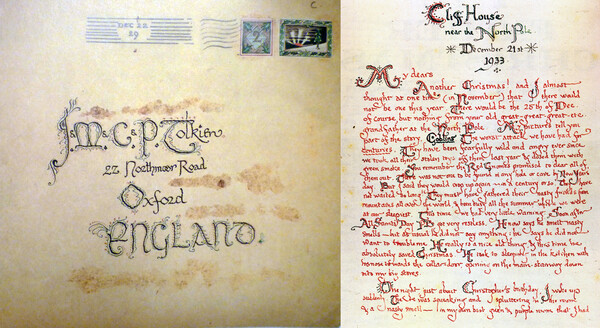 DEC 22
29
2
C
J. M. C. & P. Tolkien
22 Northmoor Road
Oxford
ENGLAND.
Cliff House
near the North Pole
December 21st
1933
My dears
Another Christmas! and I almost
thought at one time (in November) that there would
not be one this year. There would be the 25th of Dec.
of course, but nothing from your old great-great-great etc.
grandfather at the North Pole. My pictures tell you
part of the story. Goblins. The worst attack we have had for
centuries. They have been fearfully wild and angry ever since
we took all their stolen toys off them last year & dosed them with
green smoke. You remember the Red Gnomes promised to clear all of
them out. There was not one to be found in any hole or cave by New Year's
day. But I said they would crop up again in a century or so. They have
not waited so long! They must have gathered their nasty friends from
mountains all over the world, & been busy all the summer while we were
at our sleepiest. This time we had very little warning. Soon after
All Saints' Day PB got very restless. He now says he smelt nasty
smells — but as usual he did not say anything: he says he did not
want to trouble me. He really is a nice old thing, & this time he
absolutely saved Christmas. He took to sleeping in the kitchen with
his nose towards the cellar-door, opening on the main-stairway down
into my big stores.
One night just about Christopher's birthday, I woke up
suddenly. There was squeaking and spluttering in the room
& a nasty smell — in my own best green & purple room that I had